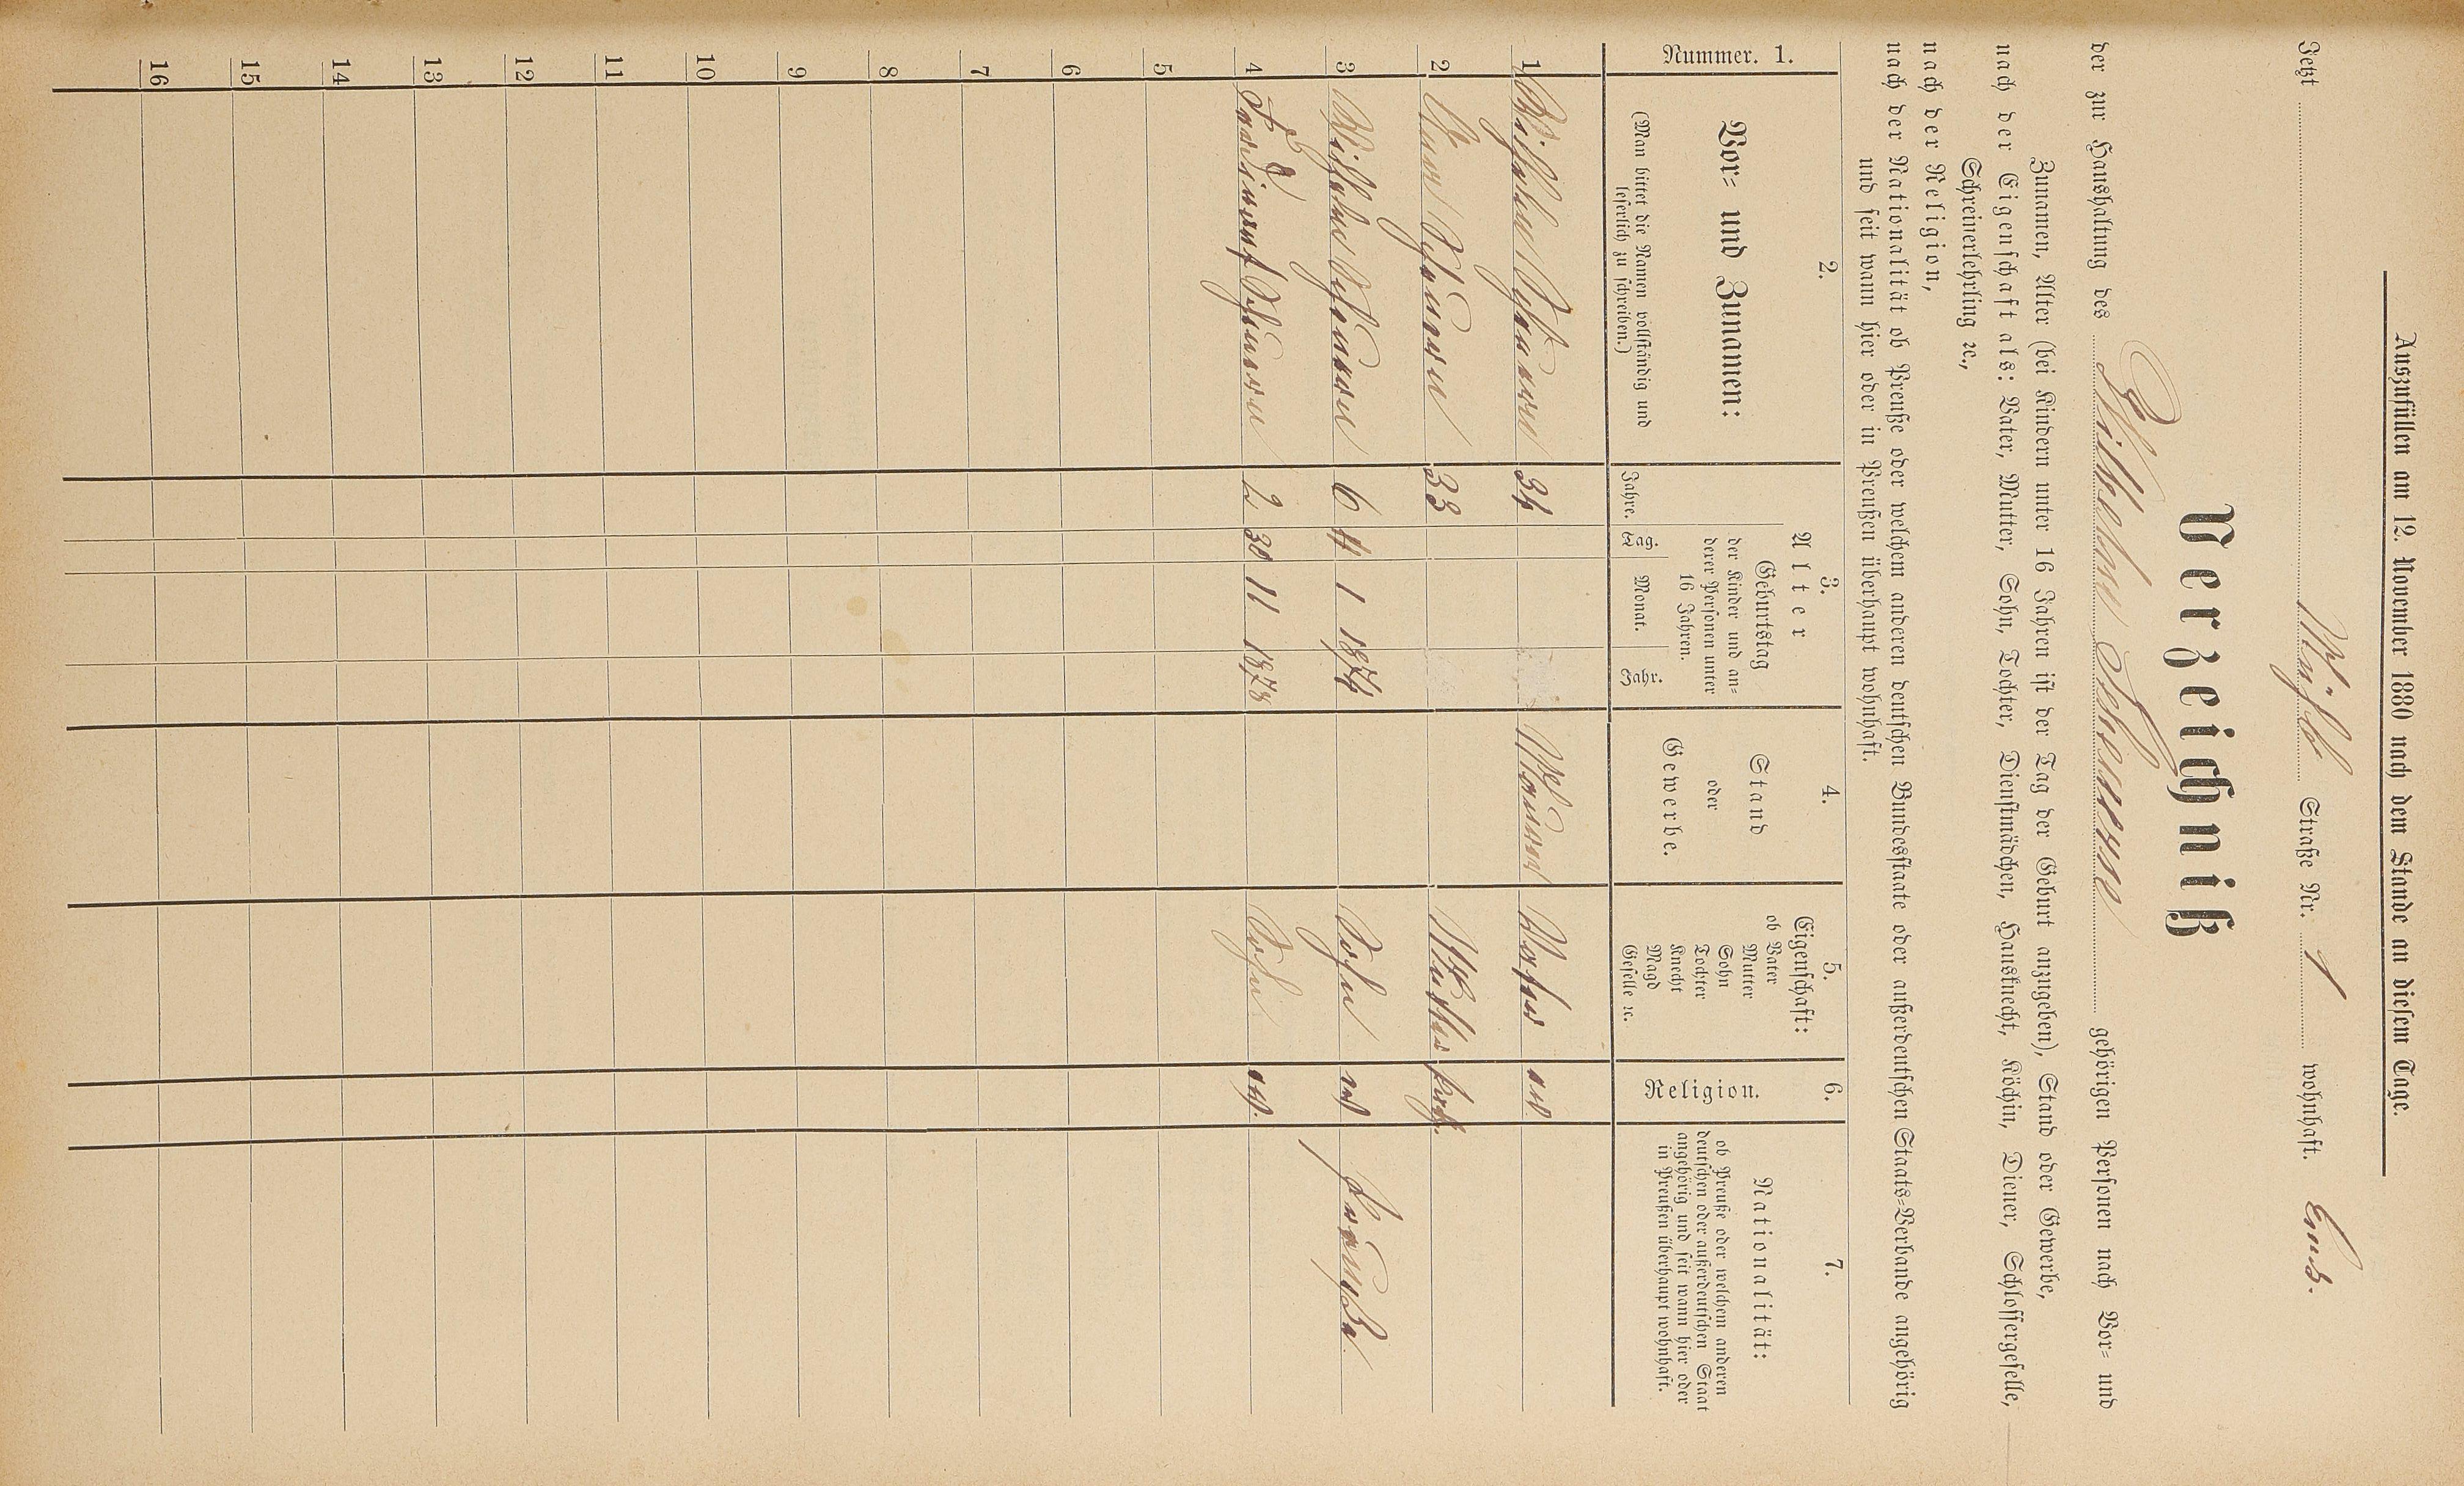 Auszufüllen am 12. November 1880 nach dem Stande an diesem Tage.
Jetzt Straße Nr. 1 wohnhaft. Ems.
Verzeichniß
der zur Haushaltung des Wilhelm Schumann gehörigen Personen nach Vor- und
Zunamen, Alter (bei Kindern unter 16 Jahren ist der Tag der Geburt anzugeben), Stand oder Gewerbe,
nach der Eigenschaft als: Vater, Mutter, Sohn, Tochter, Dienstmädchen, Hausknecht, Köchin, Diener, Schlossergeselle,
Schreinerlehrling ꝛc.,
nach der Religion,
nach der Nationalität ob Preuße oder welchem anderen deutschen Bundesstaate oder außerdeutschen Staats-Verbande angehörig
und seit wann hier oder in Preußen überhaupt wohnhaft.
Nummer. 1.
2.
Vor- und Zunamen:
(Man bittet die Namen vollständig und
leserlich zu schreiben.)
3.
Alter
Jahre.
Geburtstag
der Kinder und an-
derer Personen unter
16 Jahren.
Tag. Monat. Jahr.
4.
Stand
oder
Gewerbe.
5.
Eigenschaft:
ob Vater
Mutter
Sohn
Tochter
Knecht
Magd
Geselle ꝛc.
6.
Religion.
7.
Nationalität:
ob Preuße oder welchem anderen
deutschen oder außerdeutschen Staat
angehörig und seit wann hier oder
in Preußen überhaupt wohnhaft.
1 Wilhelm Schumann 34 Maurer Vater ev.
2 Schumann 33 Mutter kath.
3 Wilhelm Schumann 6 4 1 1874 Sohn ev
4 Ferdinand Schumann 2 30 11 1878 Sohn ev.
Preuße
5
6
7
8
9
10
11
12
13
14
15
16